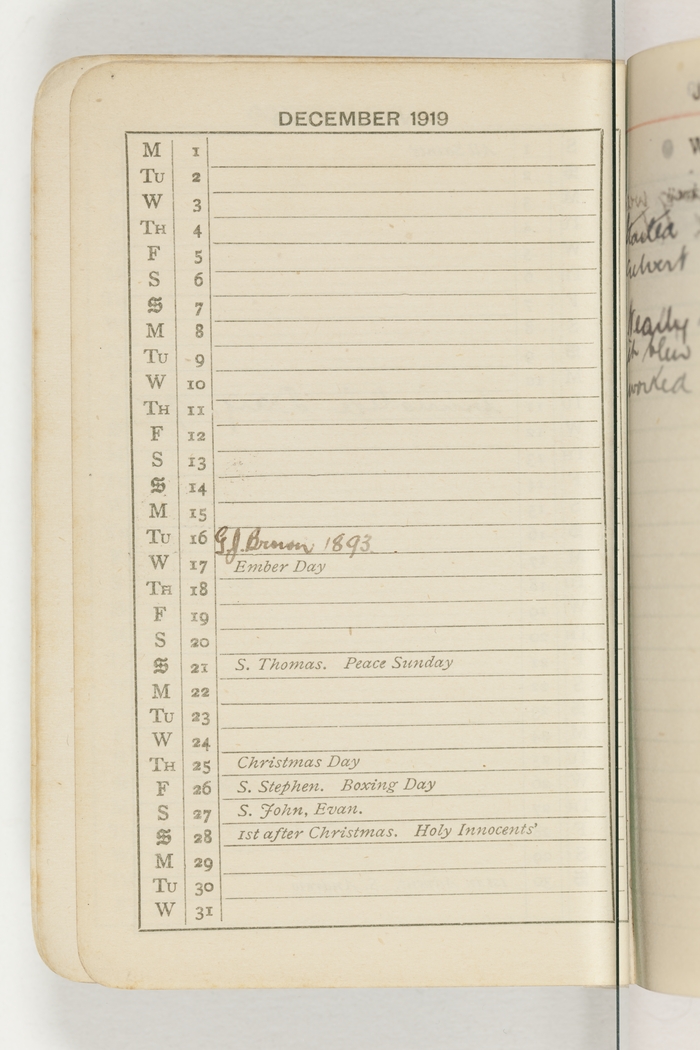 DECEMBER 1919
M 1
TU 2
W 3
TH 4
F 5
S 6
S 7
M 8
TU 9
W 10
TH 11
F 12
S 13
S 14
M 15
TU 16 G.J. 1893
W 17 Ember Day
TH 18
F 19
S 20
S 21 S. Thomas. Peace Sunday
M 22
TU 23
W 24
TH 25 Christmas Day
F 26 S. Stephen. Boxing Day
S 27 S. John, Evan.
S 28 1st after Christmas. Holy Innocents'
M 29
TU 30
W 31
worked